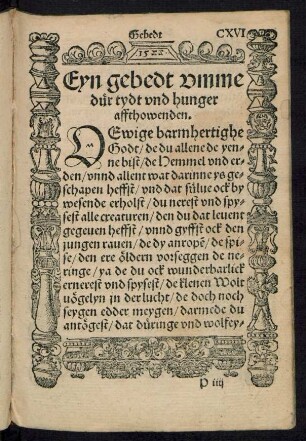 Gebedt
CXVI
1522
Eyn gebedt vmme
dür tydt vnd hunger
affthowenden.
O Ewige barmhertighe
Godt / de du allene de yen-
ne bist / de Hemmel vnd er-
den / vnnd allent wat darinne ys ge-
schapen heffst / vnd dat sülue ock by
wesende erholst / du nerest vnd spy-
sest alle creaturen / den du dat leuent
gegeuen heffst / vnnd gyffst ock den
jungen rauen / de dy anropē / de spi-
se / den ere öldern vorseggen de ne-
ringe / ya de du ock wunderbarlick
ernerest vnd spysest / de klenen Wolt
vögelyn in der lucht / de doch noch
seygen edder meygen / darmede du
antögest / dat düringe vnd wolfey-
P iiij